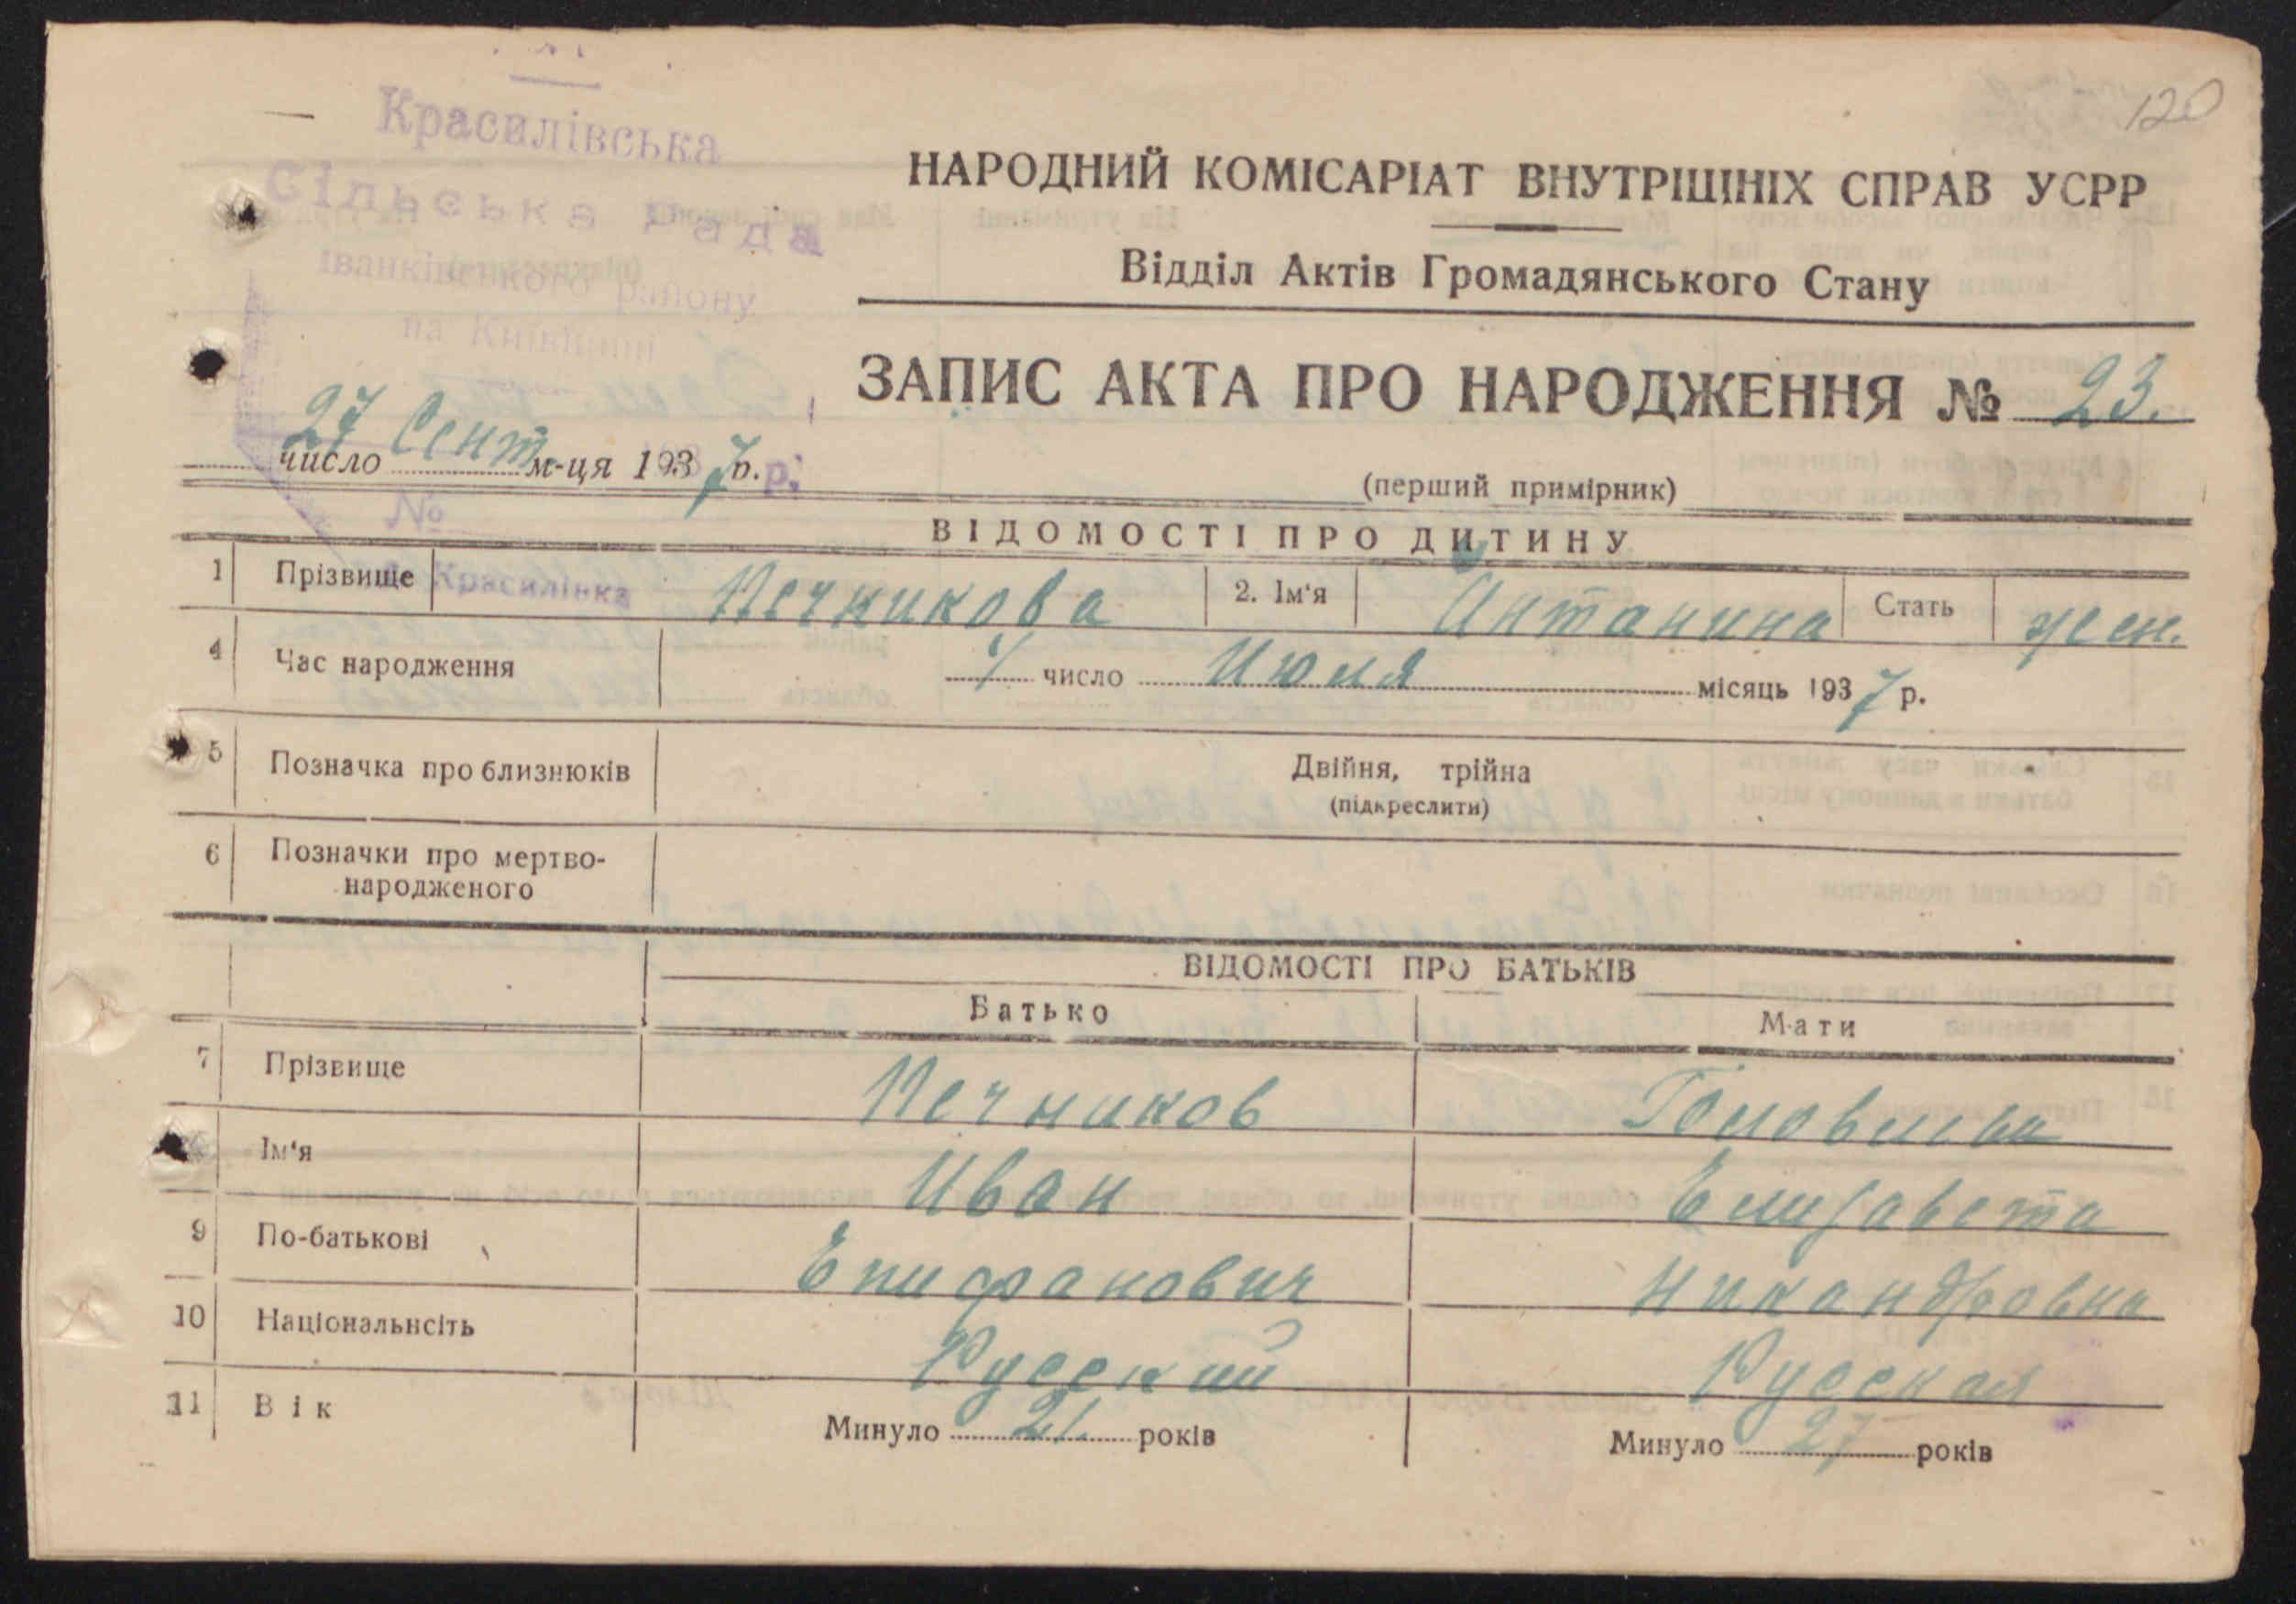 120
Красилівська
Сільська Рада
Іванківського району
на Київщині
НАРОДНИЙ КОМІСАРІАТ ВНУТРІШНІХ СПРАВ УСРР
Відділ Актів Громадянського Стану
ЗАПИС АКТА ПРО НАРОДЖЕННЯ № 23.
27 число Сент. м-ця 1937 р. р.
(перший примірник)
№
ВІДОМОСТІ ПРО ДИТИНУ
1 Прізвище Печникова 2. Ім'я Антанина Стать жен.
Красилівка
4 Час народження число Июля місяць 1937 р.
5 Позначка про близнюків Двійня, трійна
(підкреслити)
6 Позначки про мертво-
народженого
ВІДОМОСТІ ПРО БАТЬКІВ
Батько Мати
7 Прізвище Печников
Ім'я Иван Елизавета
9 По-батькові Епифанович Никандровна
10 Національнсіть Русский Русская
11 Вік Минуло 21. років Минуло 27 років